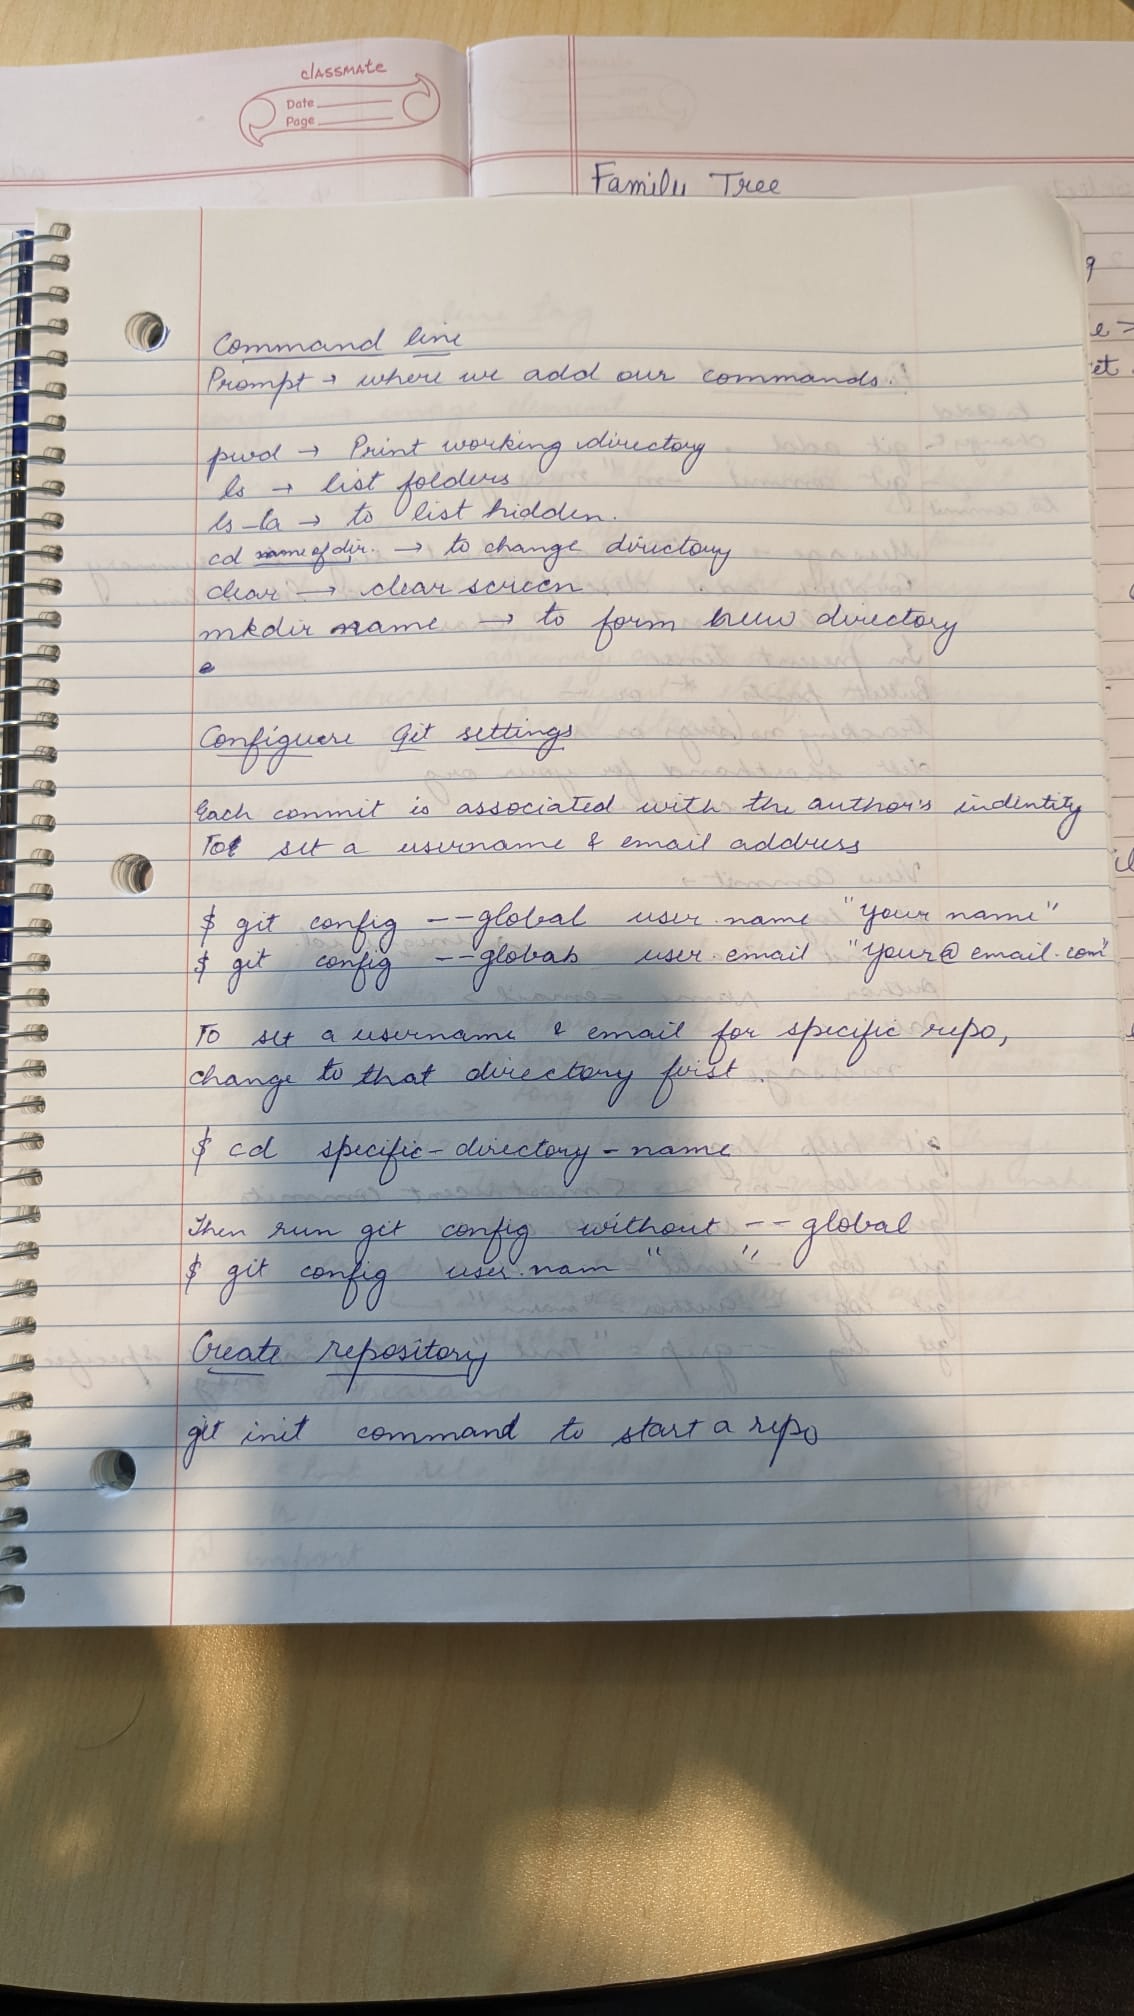 classmate
Date
Page
Family Tree
Command line
Prompt → where we add our commands.
pwd → Print working directory
ls → list folders
ls -la → to list hidden.
cd name of dir. → to change directory
clear → clear screen
mkdir name → to form new directory
Configure Git settings
Each commit is associated with the author's indentity
To set a username & email address
$ git config --global user.name "Your name"
$ git config --global user.email "Your@email.com"
To set a username & email for specific repo,
change to that directory first.
$ cd specific-directory-name
Then run git config without --global
$ git config user.nam " "
Create repository
git init command to start a repo